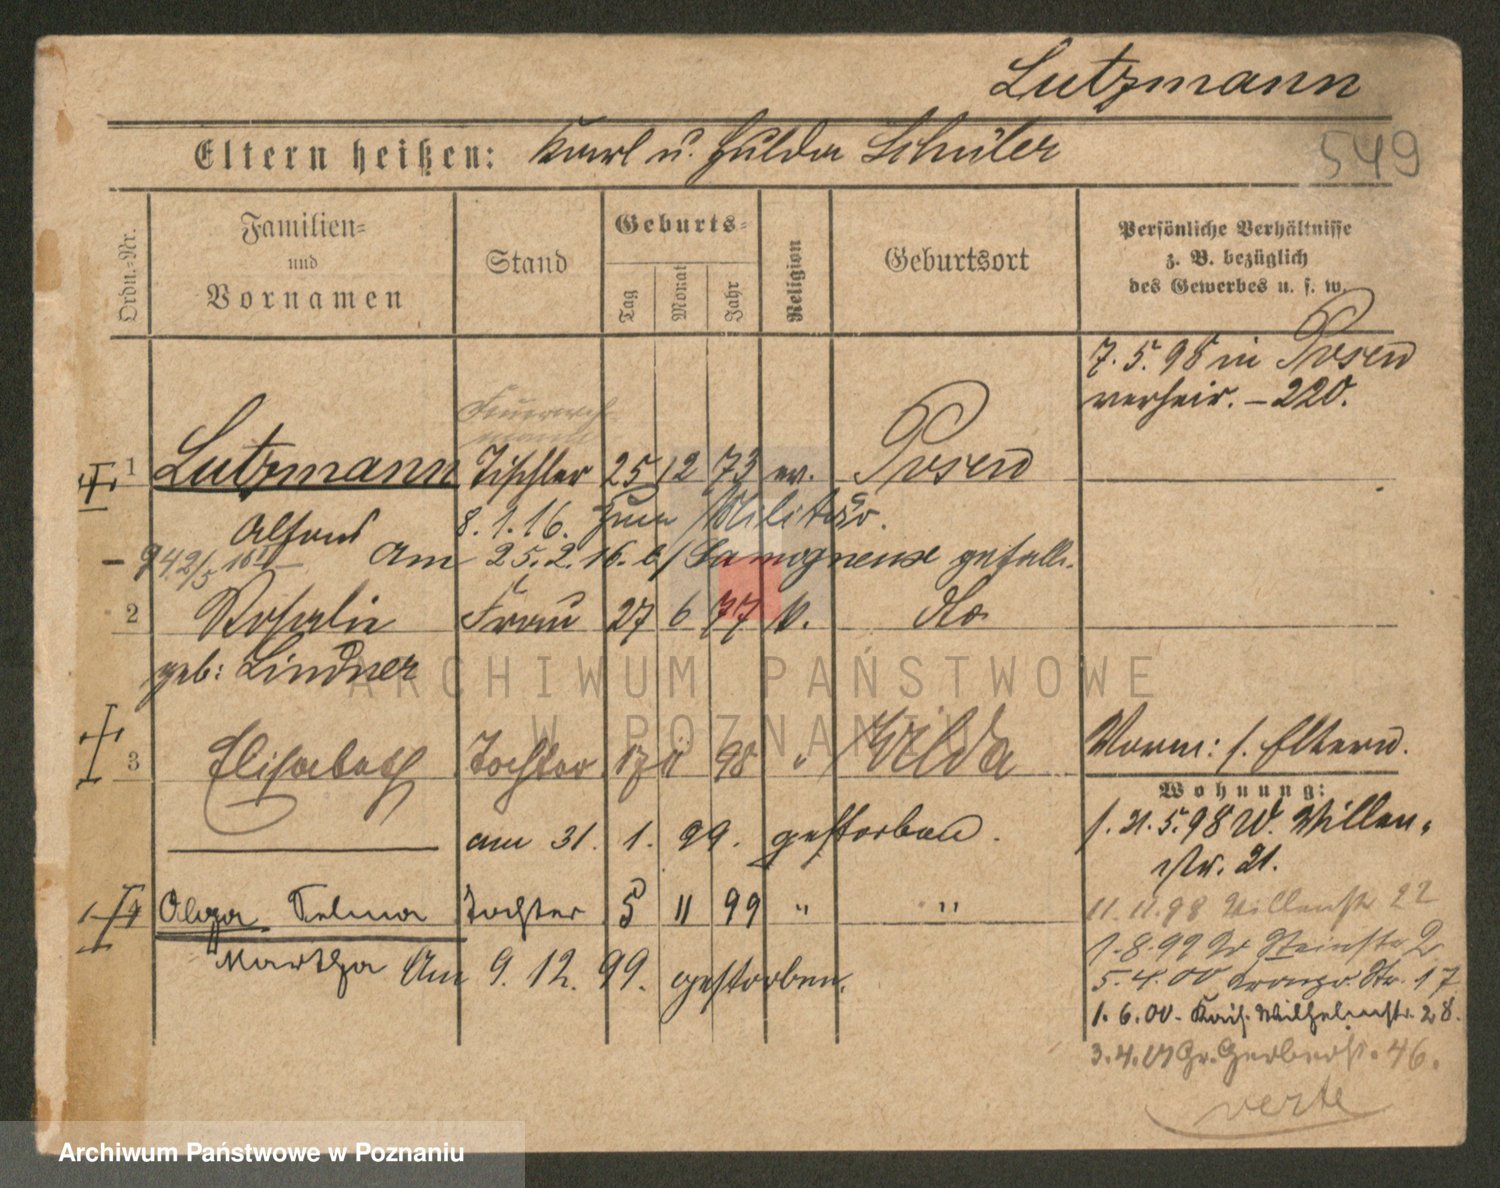 Lutzmann
Eltern heißen: Karl u. Hulda Schüler
549
Ordn.-Nr.
Familien- und Vornamen
Stand
Geburts-
Tag
Monat
Jahr
Religion
Geburtsort
Persönliche Verhältnisse
z. B. bezüglich
des Gewerbes u. s. w.
7. 5. 98 in Posen
verheir. – 220.
1 Lutzmann Tischler 25 12 73 ev. Posen
Alfons 8. 1. 16. zum Militär.
Am 25. 2. 16. gefall.
2 Rosalie Frau 27 6 77 k. do
geb: Lindner
3 Elisabeth Tochter 17 11 98 " Wilda
Vorm: s. Eltern.
Wohnung:
am 31. 1. 99. gestorben.
s. 21. 5. 98 W. Willen-
str. 21.
4 Olga Selma Tochter 5 11 99 " "
11. 11. 98 Willenstr 22
Martha Am 9. 12. 99. gestorben.
1. 8. 99 W Steinstr 2
5. 4. 00 Kronpr. Str. 17
1. 6. 00. Kais. Wilhelmstr. 28.
3. 4. 01 Gr. Gerberstr. 46.
verte
ARCHIWUM PAŃSTWOWE
W POZNANIU
Archiwum Państwowe w Poznaniu